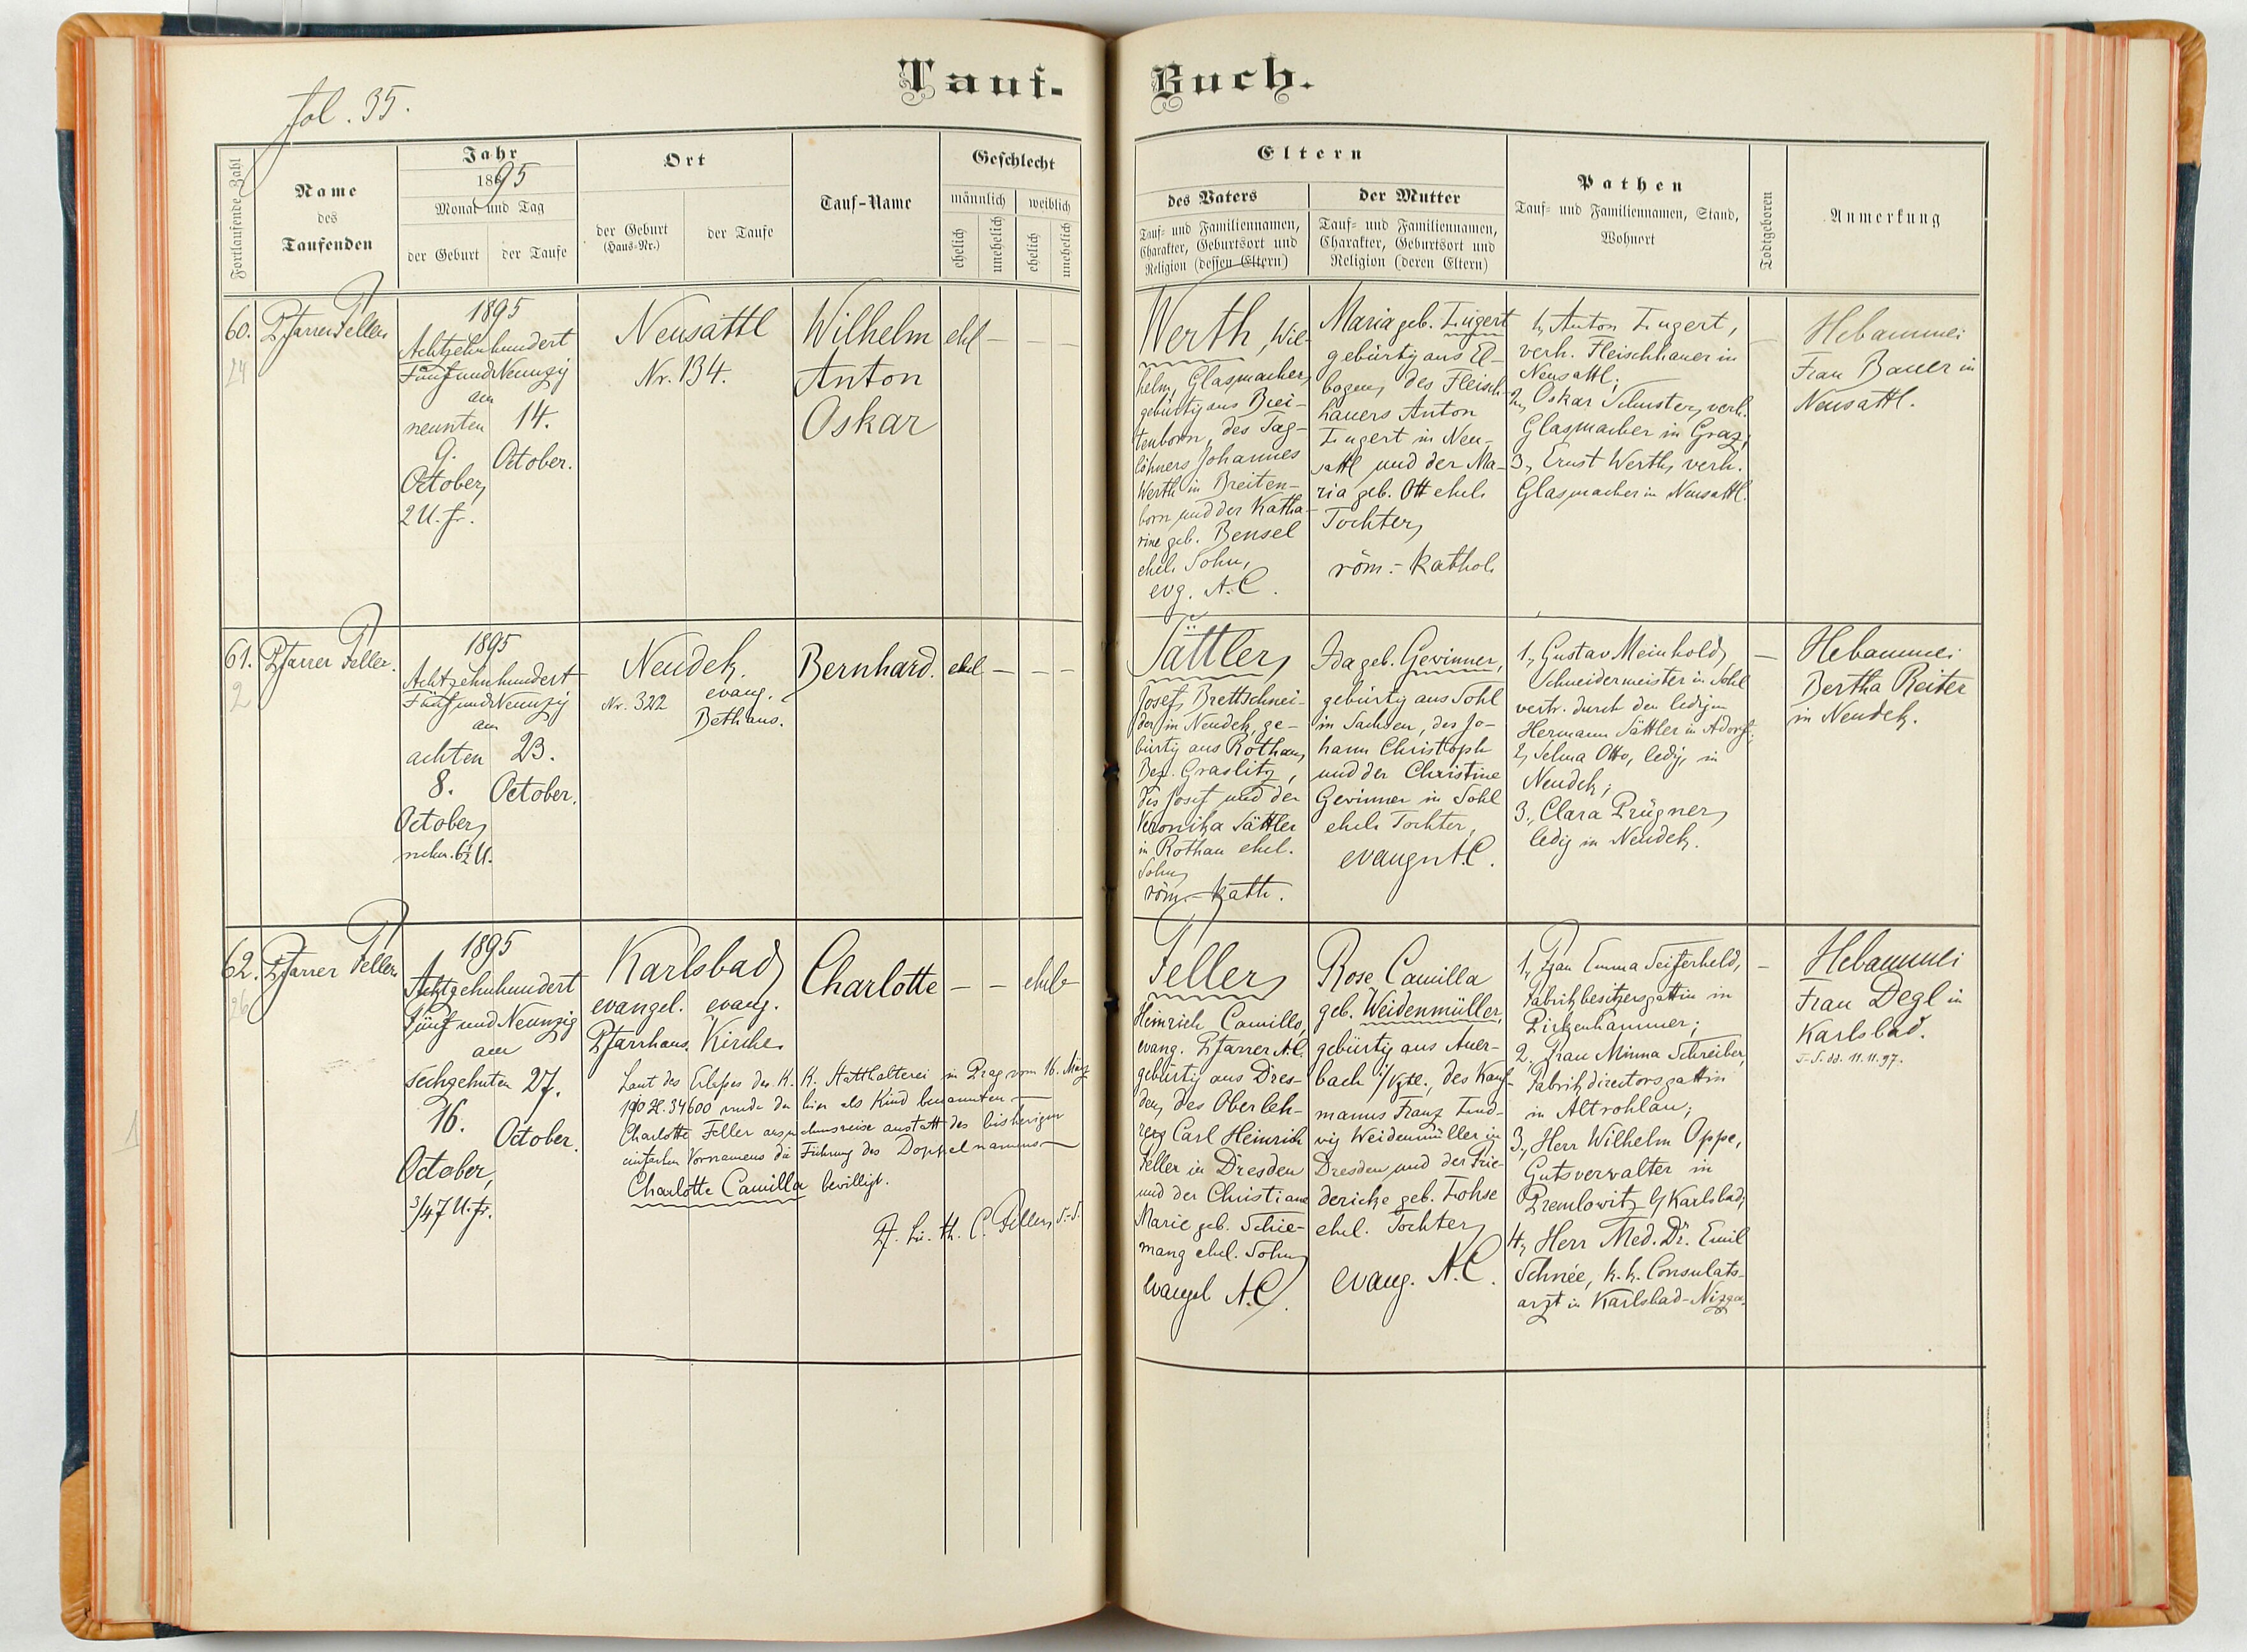 fol. 35.
Tauf-Buch.
Fortlaufende Zahl
Name
des
Taufenden
Jahr
1895
Monat und Tag
der Geburt
der Taufe
Ort
der Geburt
(Haus-Nr.)
der Taufe
Tauf-Name
Geschlecht
männlich
weiblich
ehelich
unehelich
ehelich
unehelich
Eltern
des Vaters
Tauf- und Familiennamen,
Charakter, Geburtsort und
Religion (dessen Eltern)
der Mutter
Tauf- und Familiennamen,
Charakter, Geburtsort und
Religion (deren Eltern)
Pathen
Tauf- und Familiennamen, Stand,
Wohnort
Todtgeboren
Anmerkung
60.
24
Pfarrer Feller
1895
Achtzehnhundert
Fünf und Neunzig
am
neunten
9.
October,
2 U. fr.
14.
October.
Neusattl
Nr. 134.
Wilhelm
Anton
Oskar
ehl
— — —
Werth, Wil-
helm, Glasmacher,
gebürtig aus Brei-
tenborn, des Tag-
löhners Johannes
Werth in Breiten-
born und der Katha-
rine geb. Bensel
ehel. Sohn,
evg. A.C.
Maria geb. Lugert
gebürtig aus El-
bogen, des Fleisch-
hauers Anton
Lugert in Neu-
sattl und der Ma-
ria geb. Ott ehel.
Tochter,
röm.-kathol.
1, Anton Lugert,
verh. Fleischhauer in
Neusattl.
2, Oskar Schuster, verh.
Glasmacher in Graz;
3, Ernst Werth, verh.
Glasmacher in Neusattl.
Hebamme:
Frau Bauer in
Neusattl.
61.
2
Pfarrer Feller.
1895
Achtzehnhundert
Fünf und Neunzig
am
achten
8.
October,
nchm. 6½ U.
23.
October.
Neudek.
Nr. 322
evang.
Bethaus.
Bernhard.
ehel
— — —
Sättler,
Josef, Brettschnei-
der in Neudek, ge-
bürtig aus Rothau,
Bez. Graslitz,
des Josef und der
Veronika Sättler
in Rothau ehel.
Sohn,
röm.-kath.
Ida geb. Gewinner,
gebürtig aus Sohl
in Sachsen, des Jo-
hann Christoph
und der Christine
Gewinner in Sohl
ehel. Tochter,
evang. A.C.
1, Gustav Meinhold,
Schneidermeister in Sohl
vertr. durch den ledigen
Hermann Sättler in Adorf;
2, Selma Otto, ledig, in
Neudek;
3, Clara Prügner,
ledig in Neudek.
—
Hebamme:
Bertha Reiter
in Neudek.
62.
26
Pfarrer Feller
1895
Achtzehnhundert
Fünf und Neunzig
am
sechzehnten
16.
October,
3/4 7 U. fr.
27.
October.
Karlsbad,
evangel.
Pfarrhaus.
evang.
Kirche.
Charlotte
— —
ehel. —
Laut des Erlasses der K. K. Statthalterei in Prag vom 16. März
190 Z. 34600 wurde der hier als Kind benannten —
Charlotte Feller ausnahmsweise anstatt des bisherigen
einfachen Vornamens die Führung des Doppelnamens —
Charlotte Camilla bewilligt.
Pf. Lic. th. C. Feller, S.-S.
Feller,
Heinrich Camillo,
evang. Pfarrer A.C.
gebürtig aus Dres-
den, des Oberleh-
rers Carl Heinrich
Feller in Dresden
und der Christiane
Marie geb. Schie-
mang ehel. Sohn,
evangel. A.C.
Rose Camilla
geb. Weidenmüller,
gebürtig aus Auer-
bach i/Vgtl., des Kauf-
manns Franz Lud-
wig Weidenmüller in
Dresden und der Frie-
dericke geb. Lohse
ehel. Tochter,
evang. A.C.
1, Frau Emma Seiferheld,
Fabrikbesitzersgattin in
Pirkenhammer;
2. Frau Minna Schreiber,
Fabrikdirectorsgattin
in Altrohlau;
3, Herr Wilhelm Oppe,
Gutsverwalter in
Premlowitz b/Karlsbad;
4, Herr Med. Dr. Emil
Schnée, k. k. Consulats-
arzt in Karlsbad-Nizza.
—
Hebamme:
Frau Degl in
Karlsbad.
T-S. dd. 11.11.97.